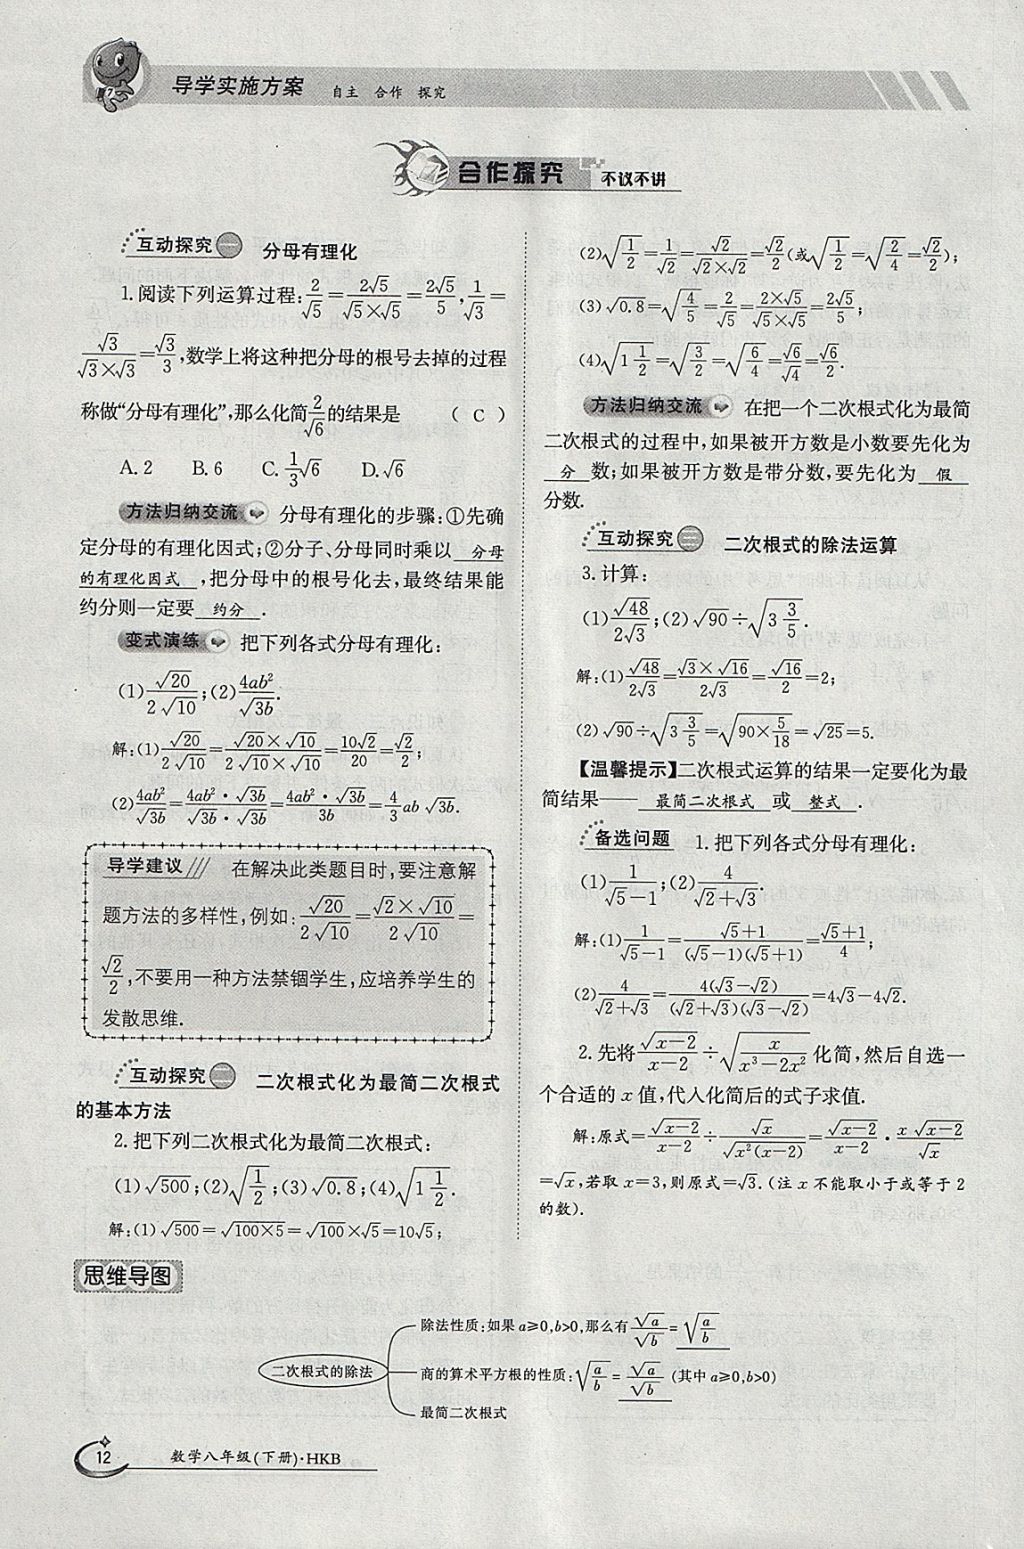 导学实施方案 自主 合作 探究
合作探究 不议不讲
互动探究一 分母有理化
1.阅读下列运算过程:2/√5=2√5/(√5×√5)=2√5/5,1/√3=
√3/(√3×√3)=√3/3,数学上将这种把分母的根号去掉的过程
称做“分母有理化”,那么化简2/√6的结果是 ( C )
A.2 B.6 C.1/3√6 D.√6
方法归纳交流 分母有理化的步骤:①先确
定分母的有理化因式;②分子、分母同时乘以 分母
的有理化因式 ,把分母中的根号化去,最终结果能
约分则一定要 约分 .
变式演练 把下列各式分母有理化:
(1)√20/(2√10);(2)4ab²/√3b.
解:(1)√20/(2√10)=(√20×√10)/(2√10×√10)=10√2/20=√2/2;
(2)4ab²/√3b=(4ab²·√3b)/(√3b·√3b)=(4ab²·√3b)/3b=4/3 ab √3b.
导学建议/// 在解决此类题目时,要注意解
题方法的多样性,例如:√20/(2√10)=(√2×√10)/(2√10)=
√2/2,不要用一种方法禁锢学生,应培养学生的
发散思维.
互动探究二 二次根式化为最简二次根式
的基本方法
2.把下列二次根式化为最简二次根式:
(1)√500;(2)√(1/2);(3)√0.8;(4)√(1 1/2).
解:(1)√500=√(100×5)=√100×√5=10√5;
(2)√(1/2)=1/√2=√2/(√2×√2)=√2/2(或√(1/2)=√(2/4)=√2/2);
(3)√0.8=√(4/5)=2/√5=(2×√5)/(√5×√5)=2√5/5;
(4)√(1 1/2)=√(3/2)=√(6/4)=√6/√4=√6/2.
方法归纳交流 在把一个二次根式化为最简
二次根式的过程中,如果被开方数是小数要先化为
分 数;如果被开方数是带分数,要先化为 假
分数.
互动探究三 二次根式的除法运算
3.计算:
(1)√48/(2√3);(2)√90÷√(3 3/5).
解:(1)√48/(2√3)=(√3×√16)/(2√3)=√16/2=2;
(2)√90÷√(3 3/5)=√(90×5/18)=√25=5.
【温馨提示】二次根式运算的结果一定要化为最
简结果—— 最简二次根式 或 整式 .
备选问题 1.把下列各式分母有理化:
(1)1/(√5-1);(2)4/(√2+√3).
解:(1)1/(√5-1)=(√5+1)/((√5-1)(√5+1))=(√5+1)/4;
(2)4/(√2+√3)=4(√3-√2)/((√2+√3)(√3-√2))=4√3-4√2.
2.先将√(x-2)/(x-2)÷√(x/(x³-2x²))化简,然后自选一
个合适的x值,代人化简后的式子求值.
解:原式=√(x-2)/(x-2)÷√x/√(x²(x-2))=√(x-2)/(x-2)·x√(x-2)/√x
=√x,若取x=3,则原式=√3.(注x不能取小于或等于2
的数).
思维导图
除法性质:如果a≥0,b>0,那么有√a/√b=√(a/b)
二次根式的除法
商的算术平方根的性质:√(a/b)=√a/√b(其中a≥0,b>0)
最简二次根式
12 数学八年级(下册)·HKB